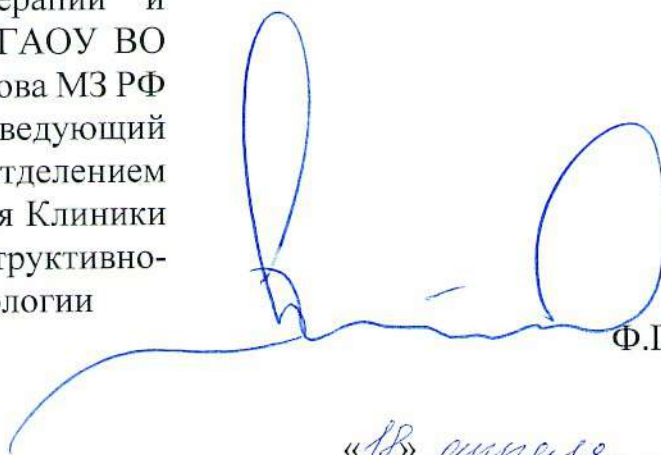 ерапии и
ГАОУ ВО
ова МЗ РФ
ведующий
тделением
я Клиники
труктивно-
ологии
Ф.П
«18» апреля